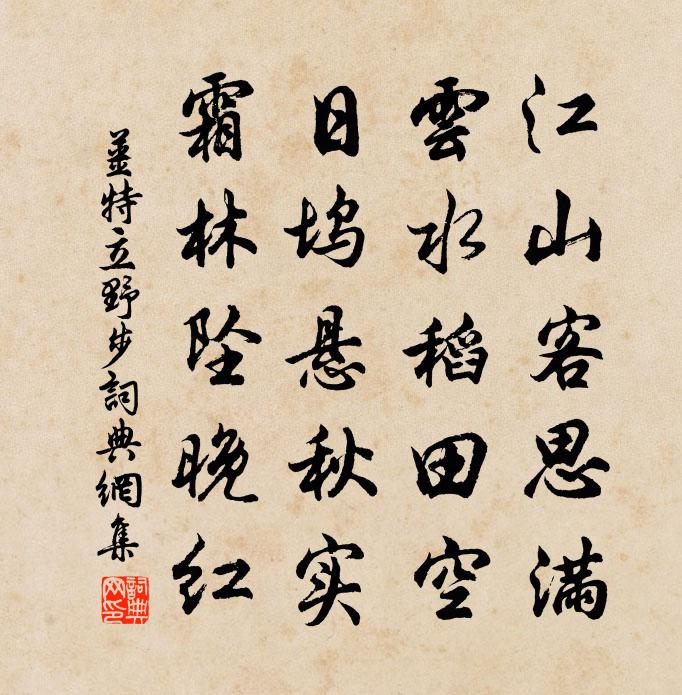 江山客思满
雲水稻田空
日坞悬秋实
霜林坠晚红
姜特立野步詞典網集
詞典
网印